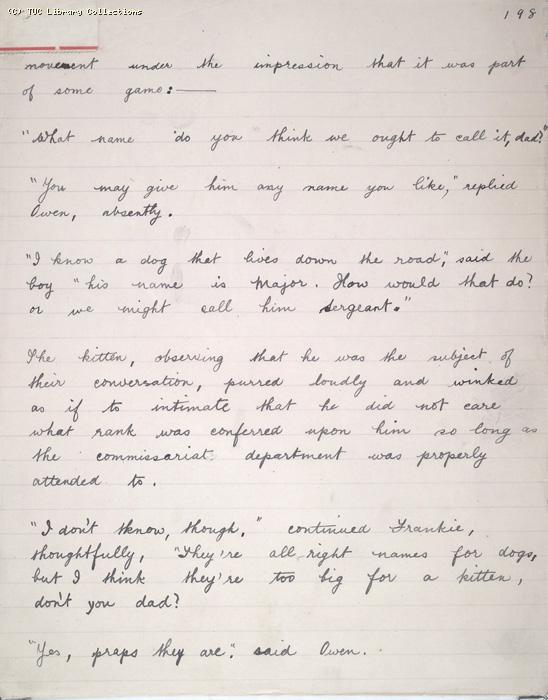 (C) TUC Library Collections
198
movement under the impression that it was part
of some game:—
"What name do you think we ought to call it, dad?"
"You may give him any name you like," replied
Owen, absently.
"I know a dog that lives down the road," said the
boy "his name is Major. How would that do?
or we might call him Sergeant."
The kitten, observing that he was the subject of
their conversation, purred loudly and winked
as if to intimate that he did not care
what rank was conferred upon him so long as
the commissariat department was properly
attended to.
"I don't know, though," continued Frankie,
thoughtfully, "They're all right names for dogs,
but I think they're too big for a kitten,
don't you dad?
"Yes, praps they are". said Owen.